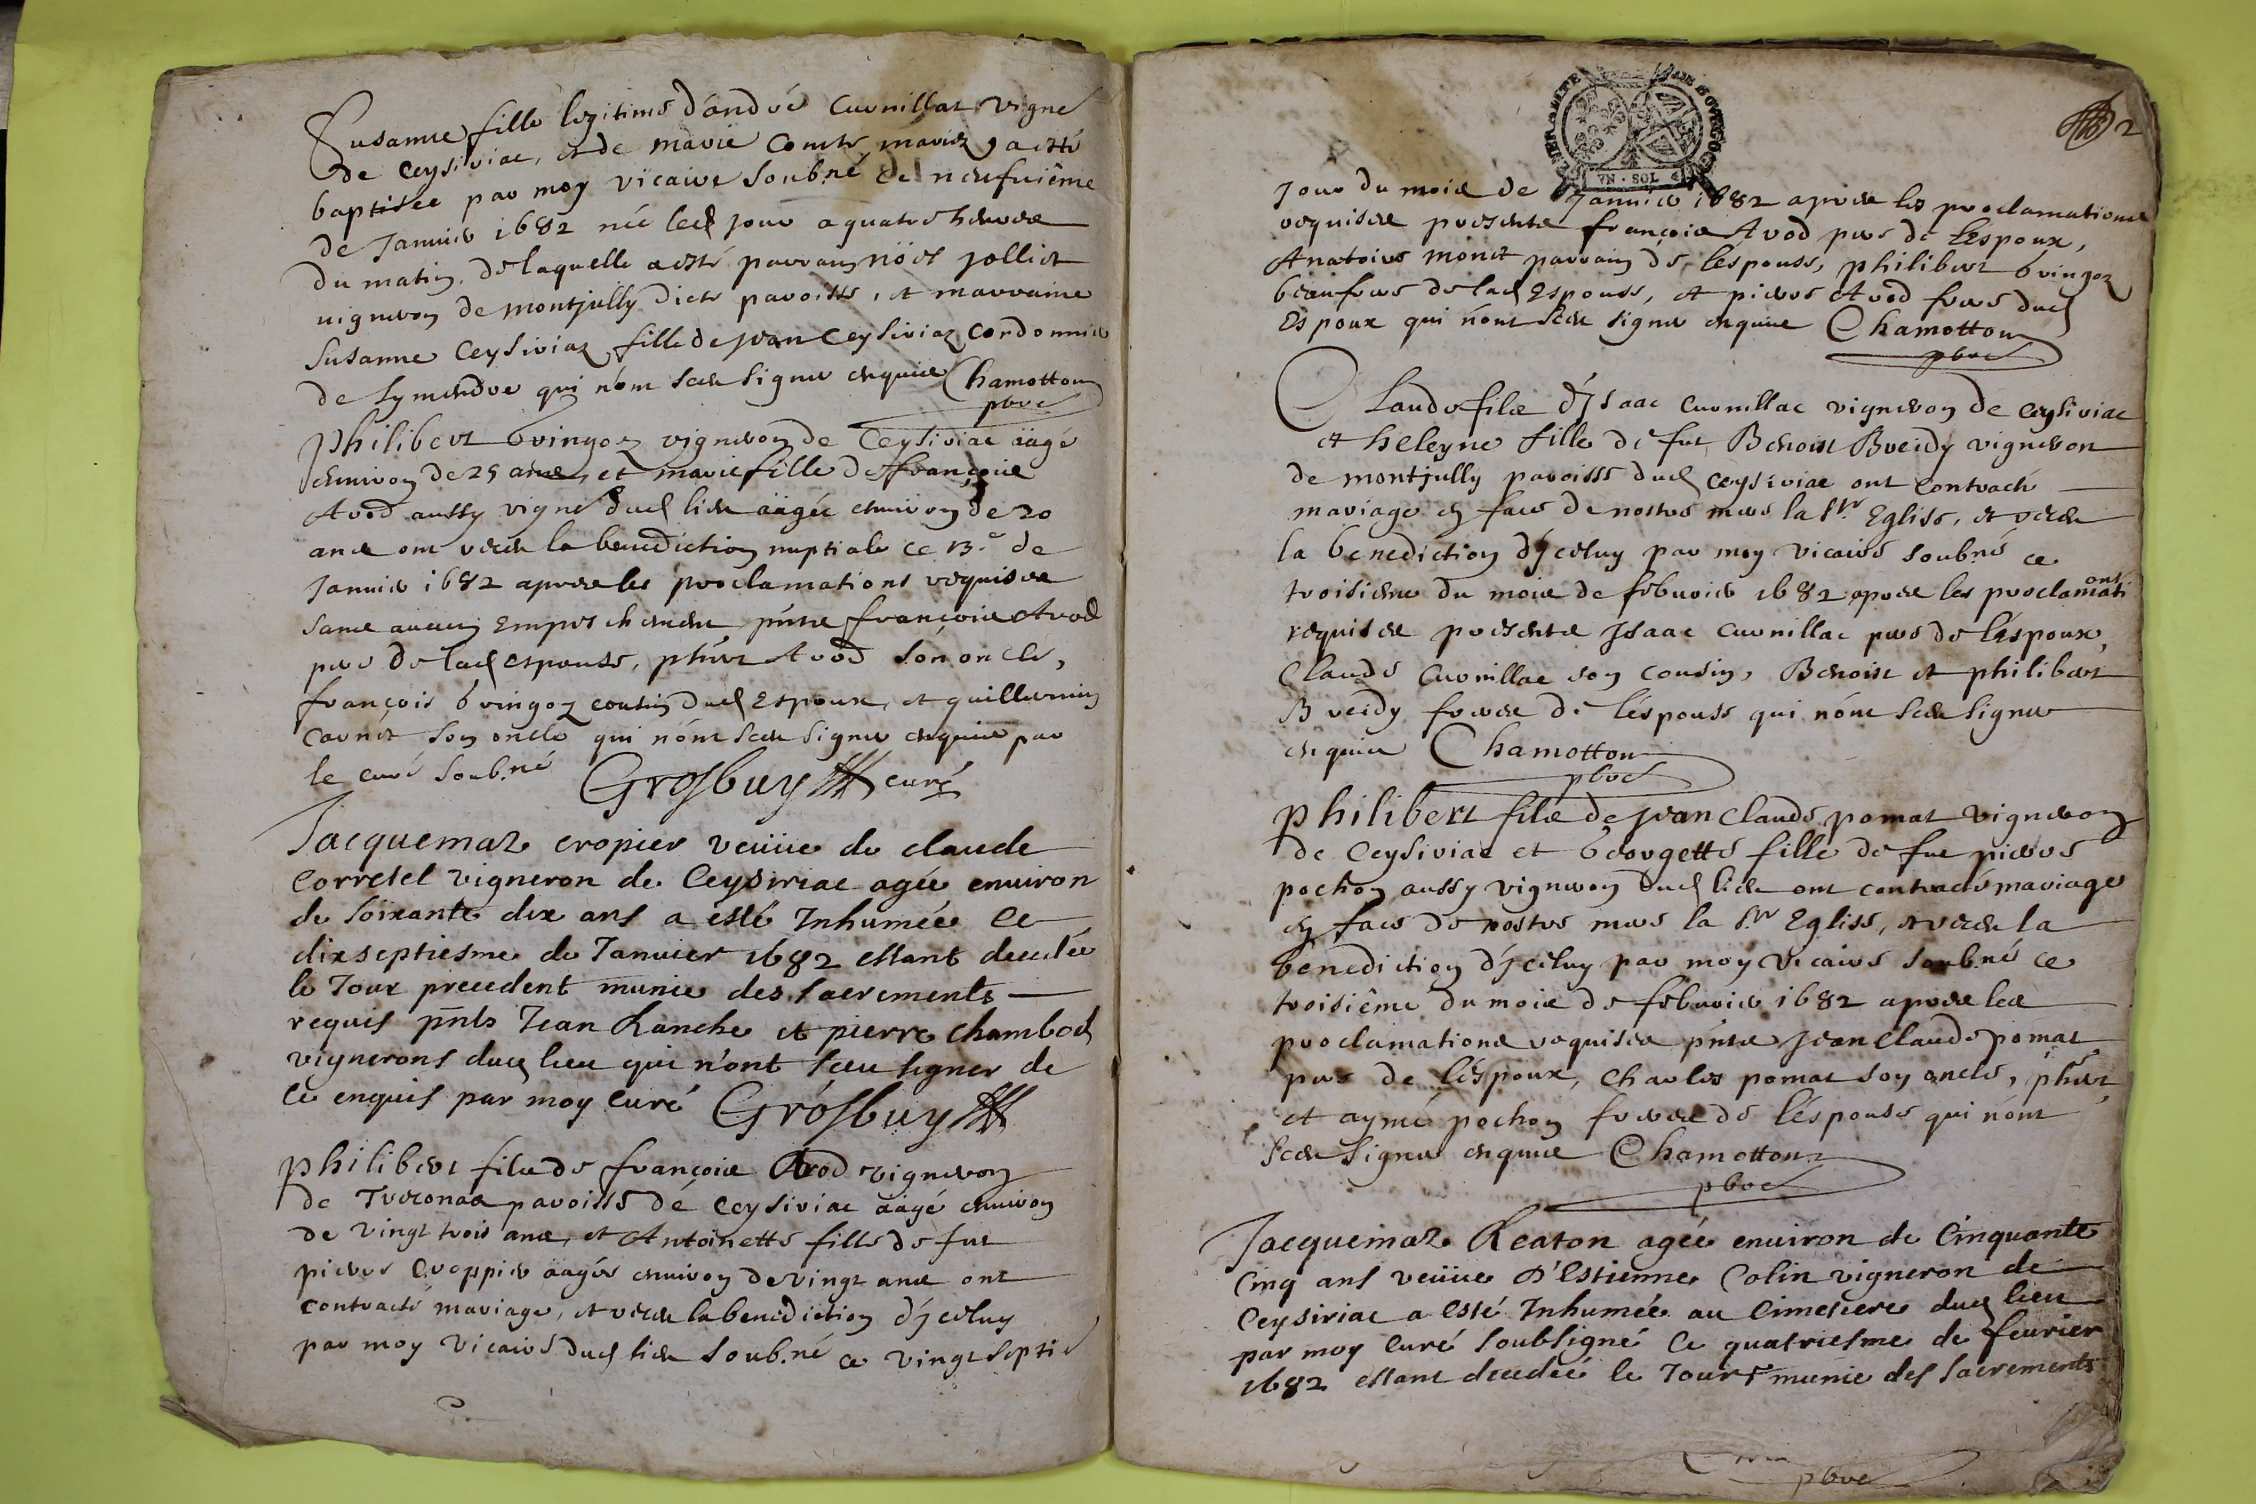 Susanne fille legitime d'andré Cuvnillat vigne
de Ceysiriat, et de marie Comte mariez a esté
baptisée par moy vicaire soub.né ce neufuiême
de Januier 1682 née led jour a quatre heures
du matin, de laquelle a esté parrain noël jolliet
uigneron de montjully dicte paroisse, et marraine
Susanne Ceysiriaz fille de jean Ceysiriaz Cordonnier
de Symendre qui n'ont sceu signer enquis Chamotton
pbre
Philibert bringoz vigneron de Ceysiriat aâgé
enuiron de 25 ans, et marie fille de françois
Arod aussy vigne dud lieu aâgée enuiron de 20
ans ont receu la benediction nuptiale ce 13.e de
Januier 1682 apres les proclamations requises
sans aucun Empeschement pnts françois Arod
pere de lad espouse, phert Arod son oncle,
françois bringoz cousin dud Espoux, et guillermin
Carnet son oncle qui n'ont sceu signer enquis par
le curé soub.né Grosbuy curé
Jacquemaz cropier veüue de claude
Corretel vigneron de Ceysiriat agée enuiron
de soixante dix ans a esté Inhumée le
dixseptiesme de Januier 1682 estant decedée
le Jour precedent munie des sacrements
requis pnts Jean Ranche et pierre Chambod
vignerons dud lieu qui n'ont sceu signer de
ce enquis par moy curé Grosbuy
Philibert fils de françois Arod vigneron
de Treconas paroisse de Ceysiriat aâgé enuiron
de vingt trois ans, et Antoinette fille de fut
pierre Croppier aâgée enuiron de vingt ans ont
contracté mariage, et receu la benediction d'jceluy
par moy vicaire dud lieu soub.né ce vingt septie
2
VN · SOL
Jour du mois de Januier 1682 apres les proclamations
requises presents françois Arod pere de lespoux,
Anatoire monet parrain de lespouse, philibert bringoz
beaufrere de lad Espouse, et pierre Arod frere dud
Espoux qui n'ont sceu signer enquis Chamotton
pbre
Claude fils d'jsaac Cuvnillat vigneron de Ceysiriat
et heleyne fille de fut Benoist Breidy vigneron
de montjully paroisse dud Ceysiriat ont contracté
mariage en face de nostre mere la ste Eglise, et receu
la benediction d'jceluy par moy vicaire soub.né ce
troisieme du mois de februier 1682 apres les proclamations
requises presents Isaac Cuvnillat pere de lespoux,
Claude Cuvnillat son cousin, Benoist et philibert
Breidy freres de lespouse qui n'ont sceu signer
enquis Chamotton
pbre
Philibert fils de jean Claude pomat vigneron
de Ceysiriat et Georgette fille de fut pierre
pochon aussy vigneron dud lieu ont contracté mariage
en face de nostre mere la ste Eglise, et receu la
benediction d'jceluy par moy vicaire soub.né ce
troisiême du mois de februier 1682 apres les
proclamations requises pnts jean Claude pomat
pere de lespoux, Charles pomat son oncle, phert
et aymé pochon freres de lespouse qui n'ont
sceu signer enquis Chamotton
pbre
Jacquemaz Reaton agée enuiron de Cinquante
Cinq ans veüue d'Estienne Colin vigneron de
Ceysiriat a esté Inhumée au Cimetiere dud lieu
par moy curé soubsigné le quatriesme de feurier
1682 estant decedée le Jour munie des sacrements
pbre